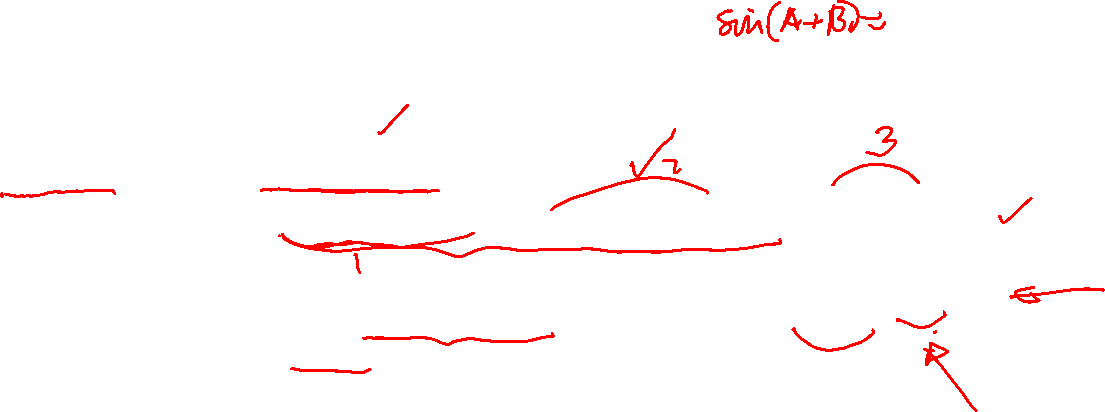 sin(A+B)=
✓2
3
1